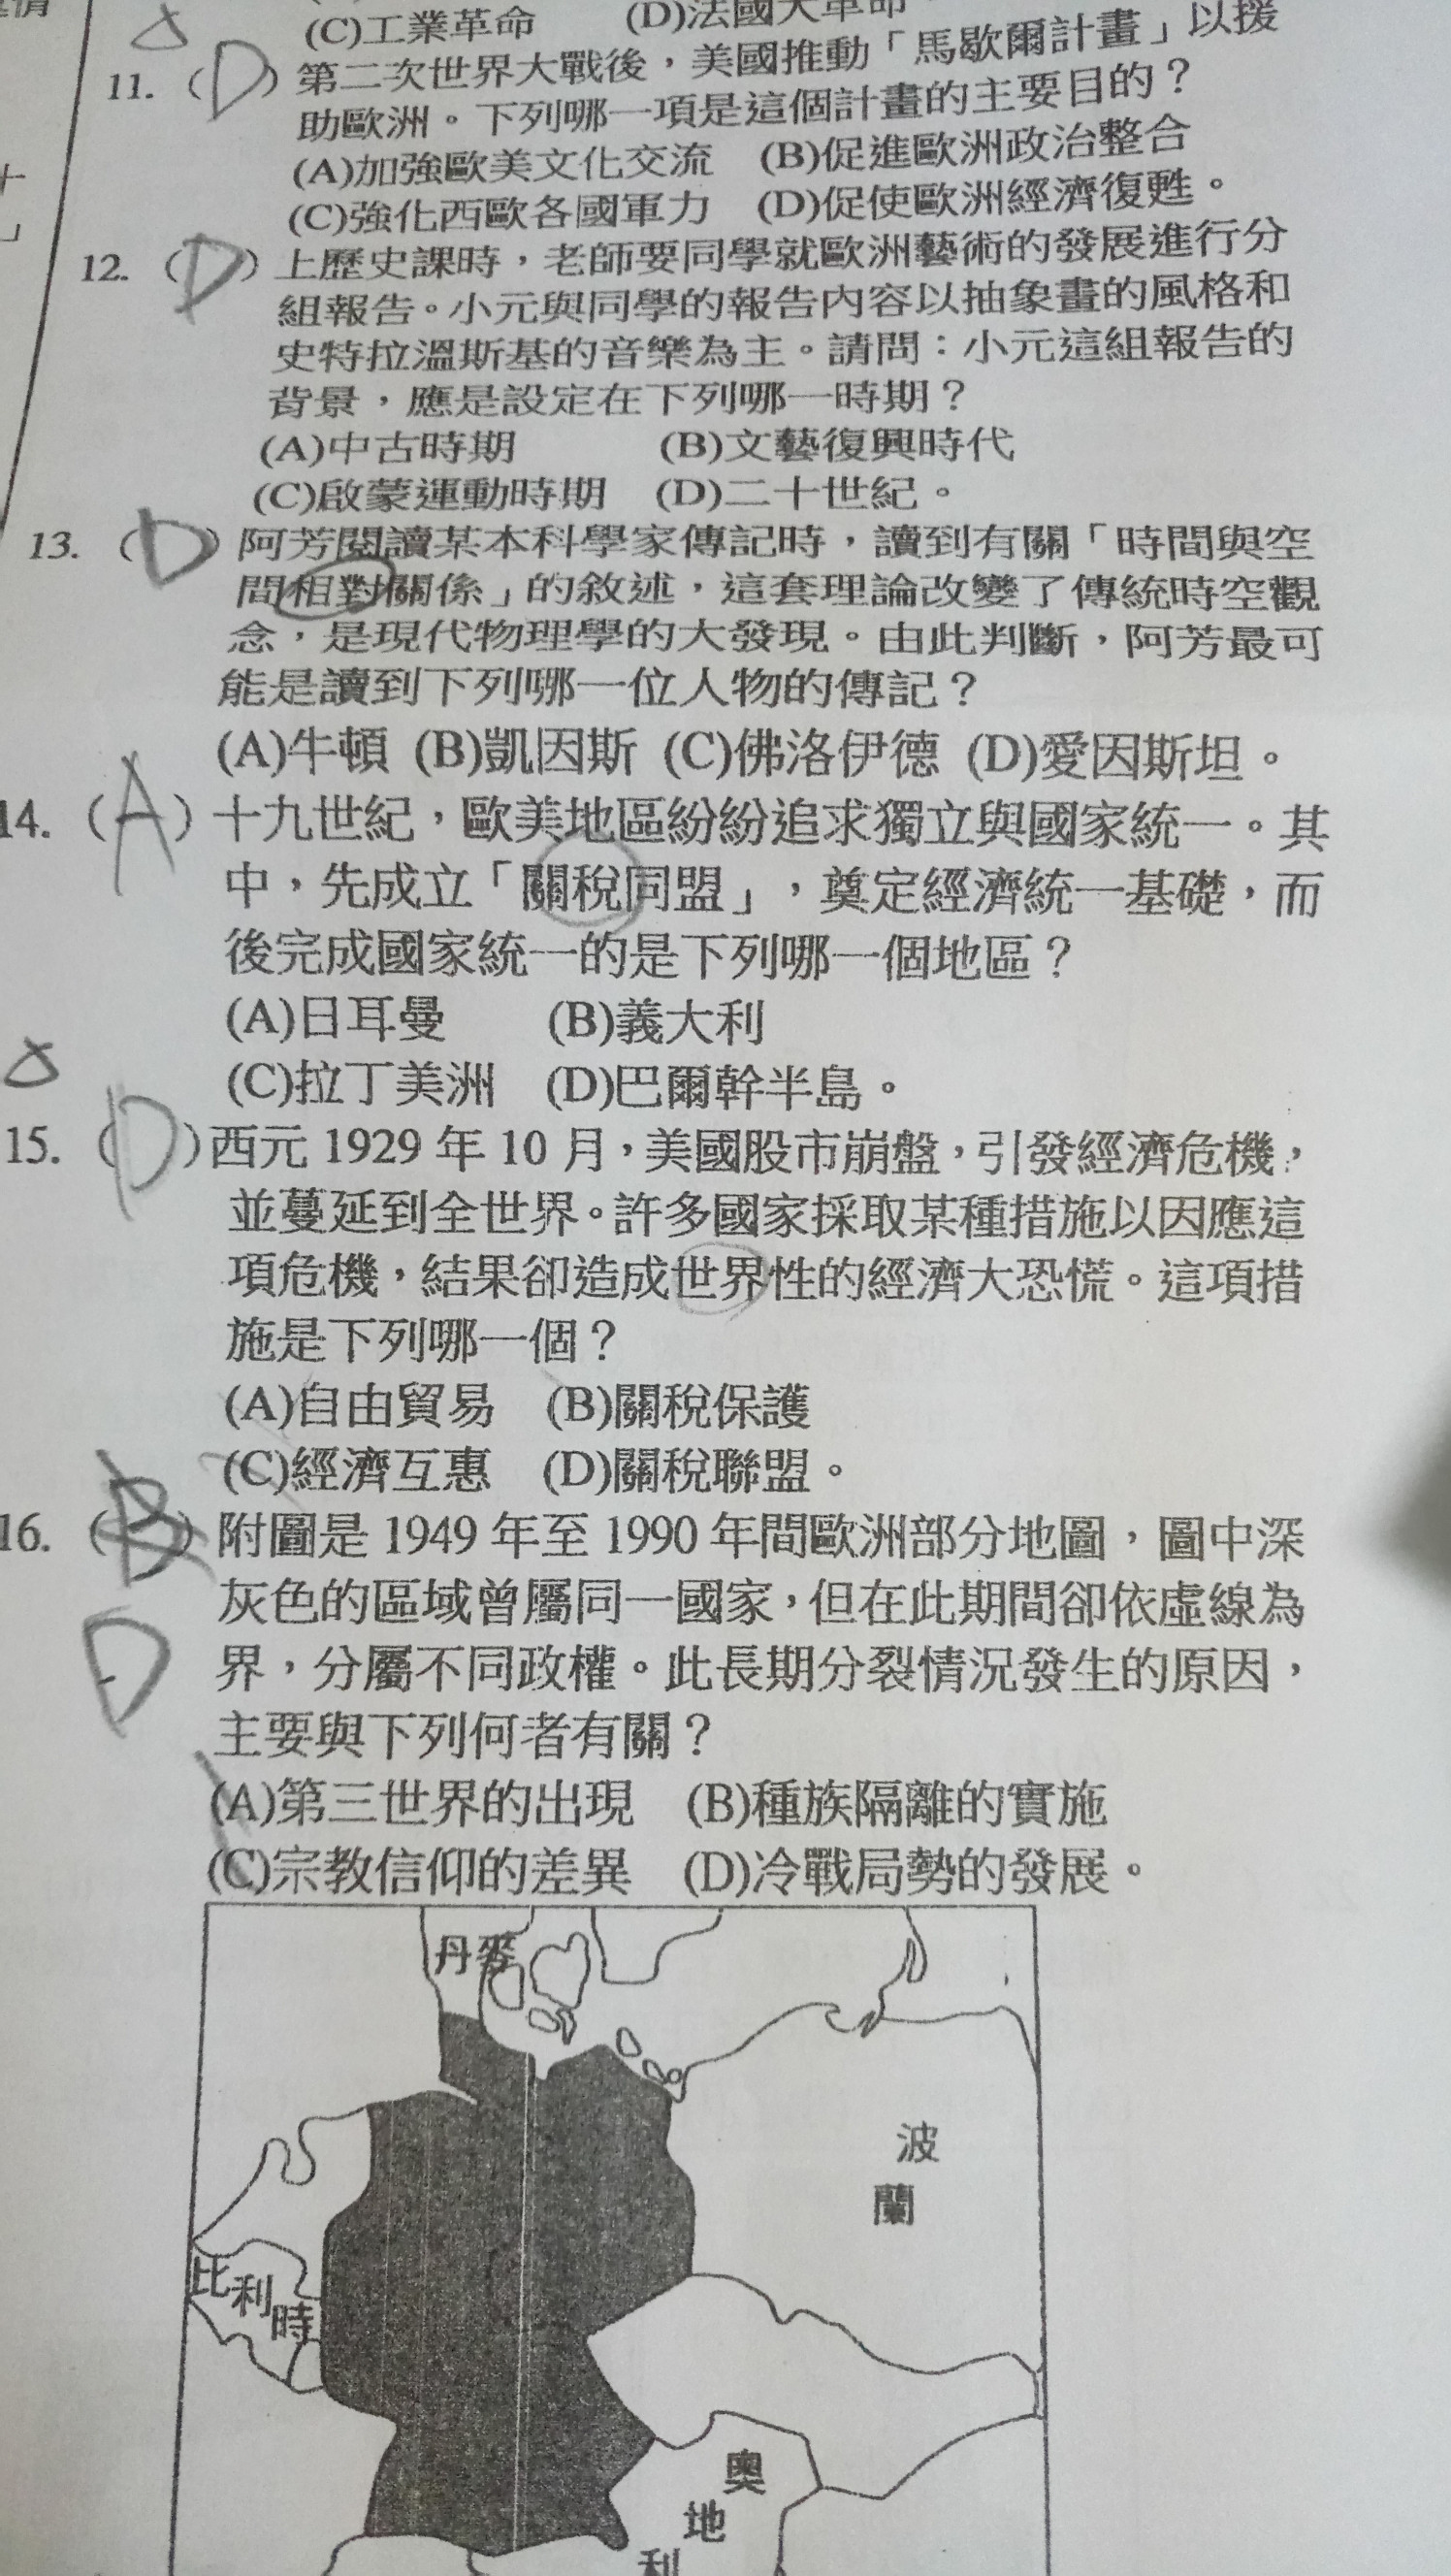 (C)工業革命 (D)法國大革命
11. (D) 第二次世界大戰後，美國推動「馬歇爾計畫」以援
助歐洲。下列哪一項是這個計畫的主要目的？
(A)加強歐美文化交流 (B)促進歐洲政治整合
(C)強化西歐各國軍力 (D)促使歐洲經濟復甦。
12. (D) 上歷史課時，老師要同學就歐洲藝術的發展進行分
組報告。小元與同學的報告內容以抽象畫的風格和
史特拉溫斯基的音樂為主。請問：小元這組報告的
背景，應是設定在下列哪一時期？
(A)中古時期 (B)文藝復興時代
(C)啟蒙運動時期 (D)二十世紀。
13. (D) 阿芳閱讀某本科學家傳記時，讀到有關「時間與空
間相對關係」的敘述，這套理論改變了傳統時空觀
念，是現代物理學的大發現。由此判斷，阿芳最可
能是讀到下列哪一位人物的傳記？
(A)牛頓 (B)凱因斯 (C)佛洛伊德 (D)愛因斯坦。
14. (A) 十九世紀，歐美地區紛紛追求獨立與國家統一。其
中，先成立「關稅同盟」，奠定經濟統一基礎，而
後完成國家統一的是下列哪一個地區？
(A)日耳曼 (B)義大利
(C)拉丁美洲 (D)巴爾幹半島。
15. (D) 西元 1929 年 10 月，美國股市崩盤，引發經濟危機，
並蔓延到全世界。許多國家採取某種措施以因應這
項危機，結果卻造成世界性的經濟大恐慌。這項措
施是下列哪一個？
(A)自由貿易 (B)關稅保護
(C)經濟互惠 (D)關稅聯盟。
16. (B) 附圖是 1949 年至 1990 年間歐洲部分地圖，圖中深
灰色的區域曾屬同一國家，但在此期間卻依虛線為
D 界，分屬不同政權。此長期分裂情況發生的原因，
主要與下列何者有關？
(A)第三世界的出現 (B)種族隔離的實施
(C)宗教信仰的差異 (D)冷戰局勢的發展。
丹麥
波蘭
比利時
奧地利